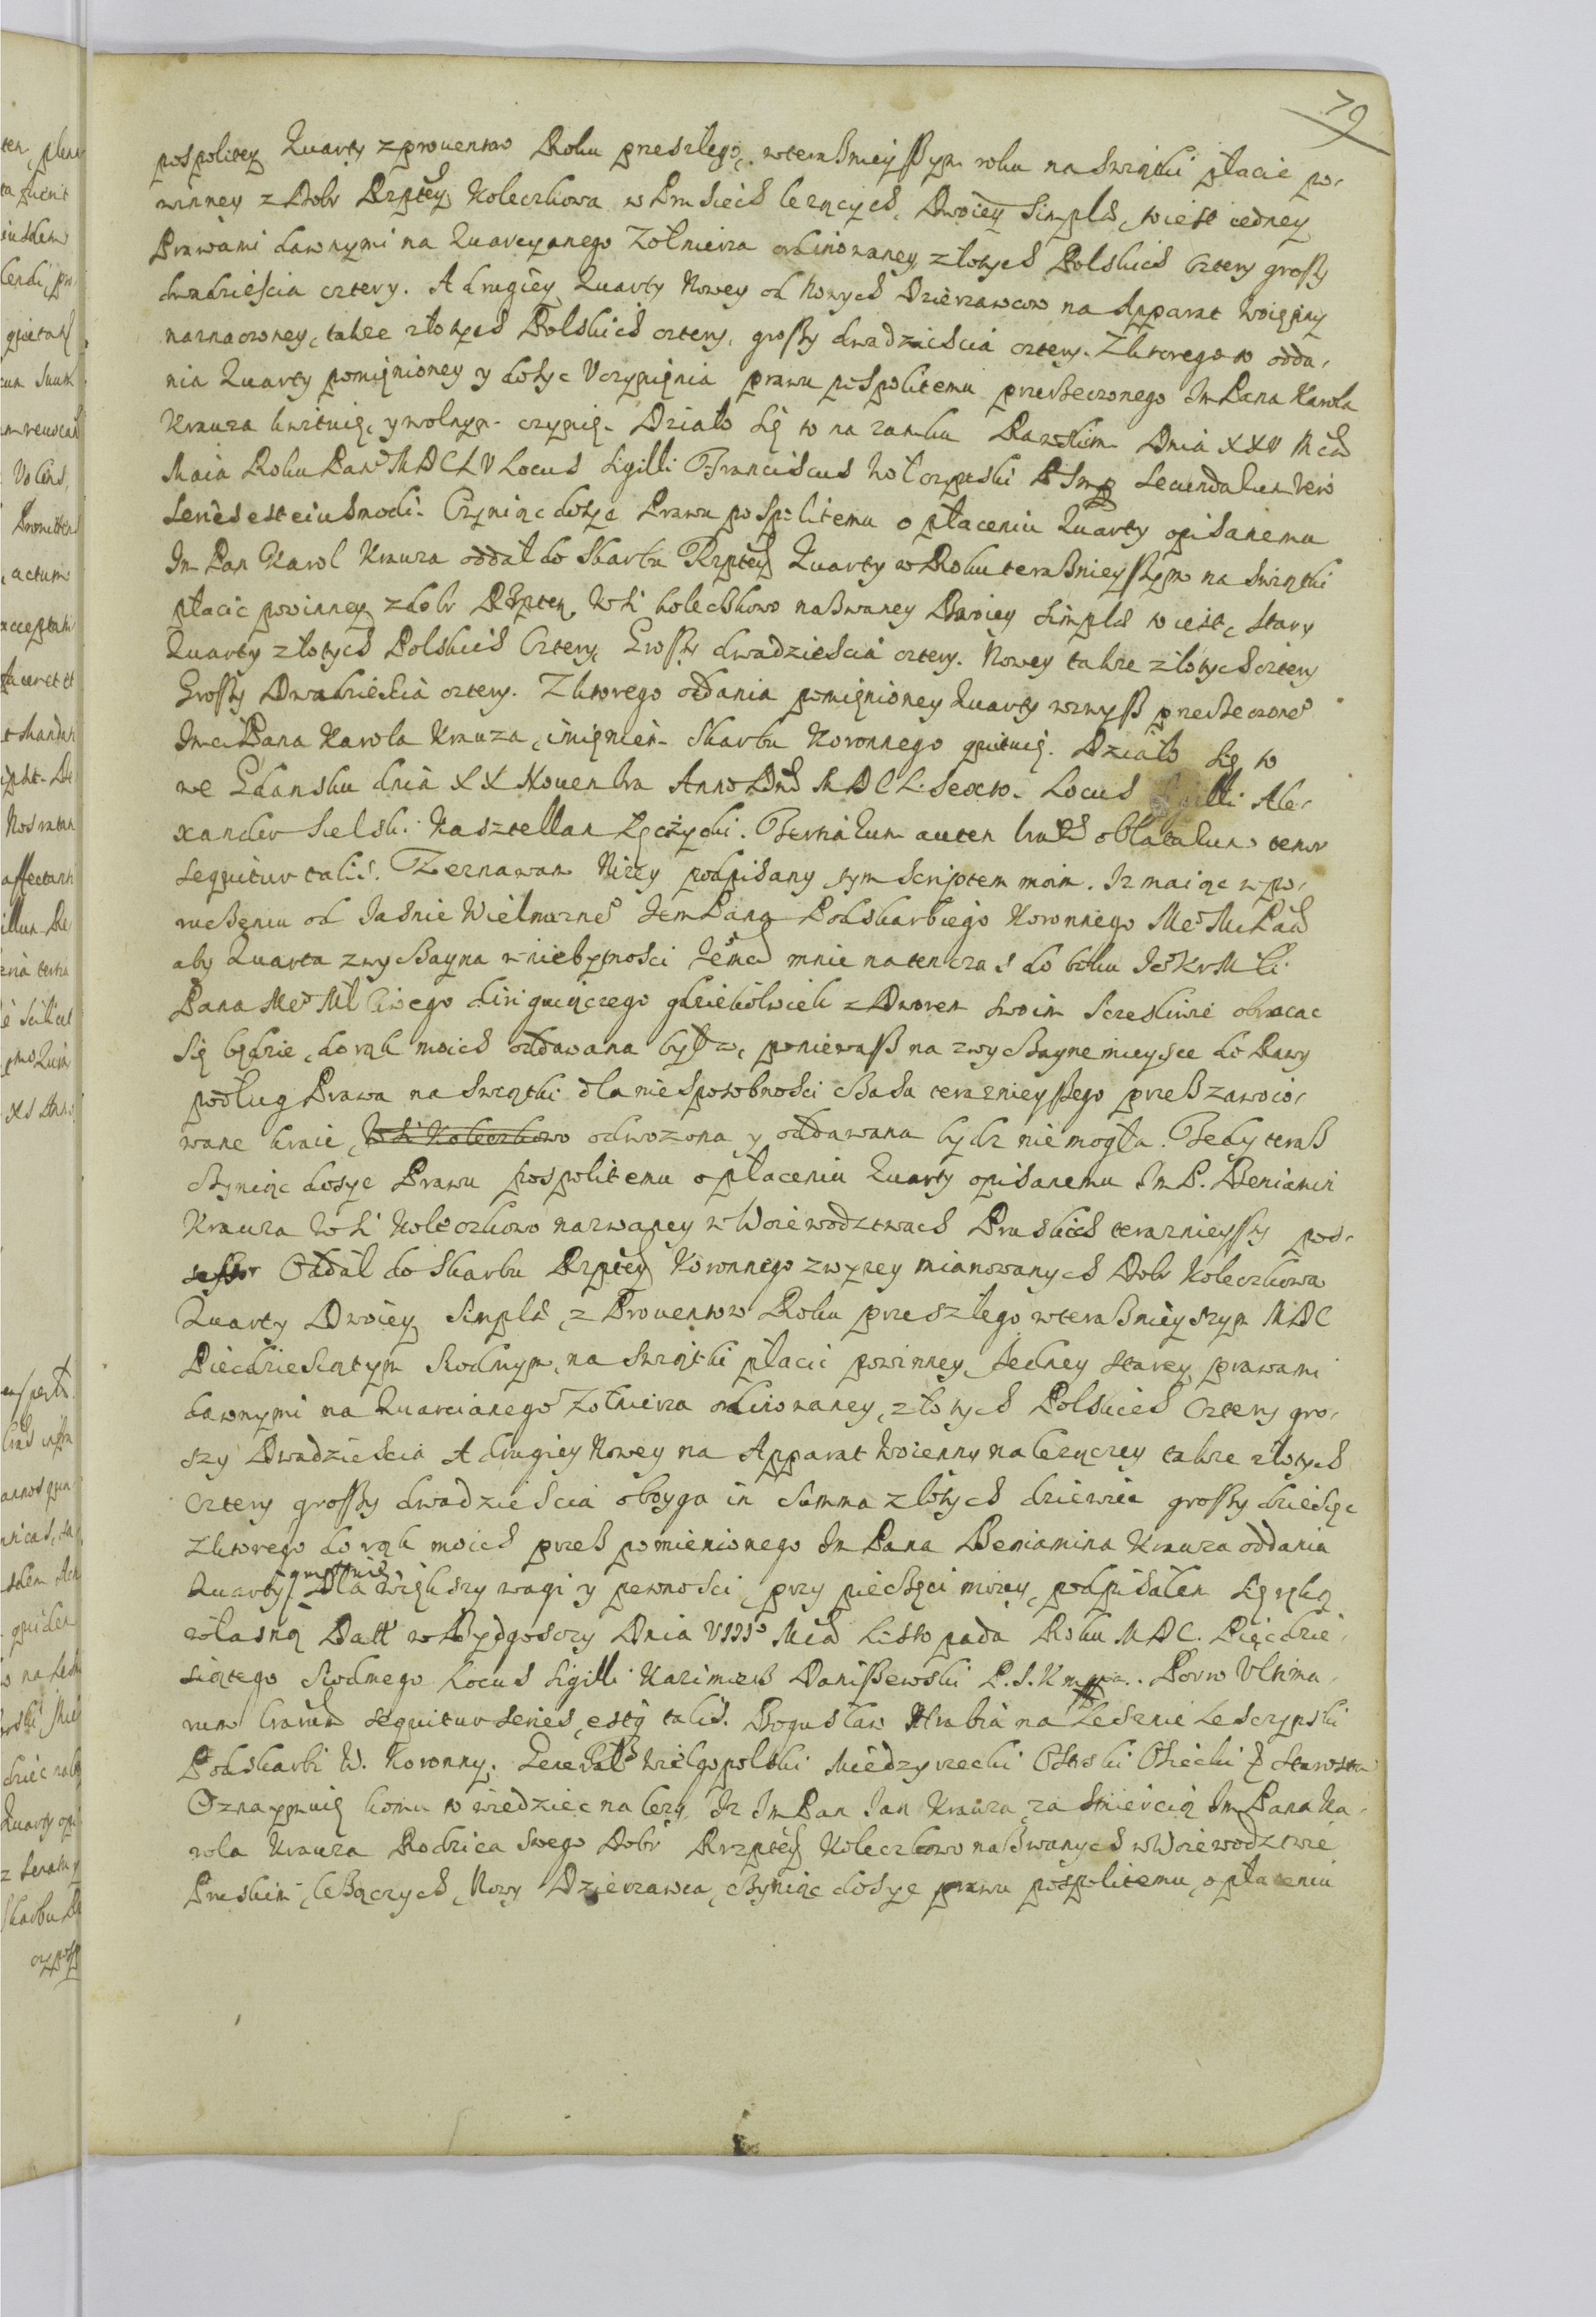 79
pospolitey Quarty z prouentow Roku przeszłego, w teraßnieyßym roku na Swiątki płacic po,
winney z Dobr Rzptey Koleczkowa w Prusiech leżących, Dwoiey Simpld, to iest iedney
Prawami dawnymi na Quarcyanego Żołnierza ordinowaney, złotych Polskich Cztery großy
dwadzieścia cztery. A drugiey Quarty Nowey od Nowych Dzierzawcow na Apparat woięnny
naznaczoney, także złotych Polskich cztery, großy dwadzieścia cztery. Z ktorego to odda,
nia Quarty pomięnioney y dosyc Uczynięnia prawu pospolitemu przerzeczonego Im Pana Karola
Krauza kwituię, y wolnym czynię. Działo się to na zamku Rawskim Dnia XXV Mca
Maia Roku Pan° MDCLV Locus Sigilli Franciscus Wołczynski P S mp Secundarum vero
series est eiusmodi. Czyniąc dosyc Prawu pospolitemu o płaceniu Quarty opisanemu
Im Pan Karol Krauza oddał do Skarbu Rzptey Quarty w Roku teraßnieyßym na Swiątki
płacic powinney z dobr Rzptey Wsi koleczkowo naßwaney Dwoiey simpld to iest, stary
Quarty złotych Polskich Cztery, Großy dwadzieścia cztery. Nowey także złotych cztery
Großy Dwadzieścia cztery. Z ktorego oddania pomięnioney Quarty wzwyß przerzeczone°
Imci Pana Karola Krauza, imięniem Skarbu Koronnego quituię. Działo się to
we Gdansku dnia XX Nouembra Anno Dni MDCL. Sexto. Locus Sigilli Ale,
xander Sielski Kasztellan Łęczycki. Tertiarum autem literarum oblatarum tenor
sequitur talis. Zeznawam Niżey podpisany tym scriptem moim. Iz maiąc w po,
ruczeniu od Jaśnie Wielmozne° Jem Pana Podskarbiego Koronnego Me° Mci Pana
aby Quarta zwyczayna w niebytności Iemci mnie na ten czas do boku Je° Kr Mści
Pana Me° Mściwego dirigui̜ączego gdziekolwiek z Dworem swoim szczesliwie obracac
się będzie, do rąk moich oddawana była, ponieważ na zwyczayne mieysce do Rawy
podług Prawa na Swiątki dla niesposobności czasu terazniey ßego przeß zawoio,
wane kraie, Wsi Koleczkowo odwozona y oddawana bydz nie mogła. Tedy teraß
czyniąc dosyc Prawu pospolitemu o płaceniu Quarty opisanemu Im P. Beniamin
Krauza Wsi Koleczkowo nazwaney w Woiewodztwach Pruskich terazniey ßy pos,
sessor Oddał do Skarbu Rzptey Koronnego zwyzey mianowanych Dobr Koleczkowa
Quarty Dwoiey Simpld, z Prouentow Roku przeszłego w teraßnieyszym MDC
Piędziesiątym siodmym, na Swiątki płacic powinney, Jedney starey prawami
dawnymi na Quarcianego Żołnierza ordinowaney, złotych Polskich Cztery gro,
szy Dwadzieścia A drugiey Nowey na Apparat woienny należączey także złotych
Cztery großy dwadzieścia oboyga in summa złotych dziewiec großy dziesięc
Z ktorego do rąk moich przeß pomienionego Im Pana Beniamina Krauza oddania
Quarty Dla większy wagi y pewnosci, przy pieczęci moiey, podpisałem się ręką
własną Datt w Bydgosczy Dnia VIII° Mca Listopada Roku MDC. Pięcdzie,
siątego siodmego Locus Sigilli Kazimierß Danißewski P.S.K mpa. Porro Ultima,
rum literarum sequitur series, estq talis. Bogusław Hrabia na Lesznie Lesczynski
Podskarbi W. Koronny. Generał Wielgopolski Miedzyrzecki Ostrski Osiecki Starosta
Oznaymuię komu to wiedziec nalezy, Iz Im Pan Jan Krauza za smiercią Im Pana Ka,
rola Krauza Rodzica swego Dobr Rzptey Koleczkowo naßwanych w Woiewodztwie
Pruskim leżączych, Nowy Dzierzawca, czyniąc dosyc prawu pospolitemu, o płaceniu